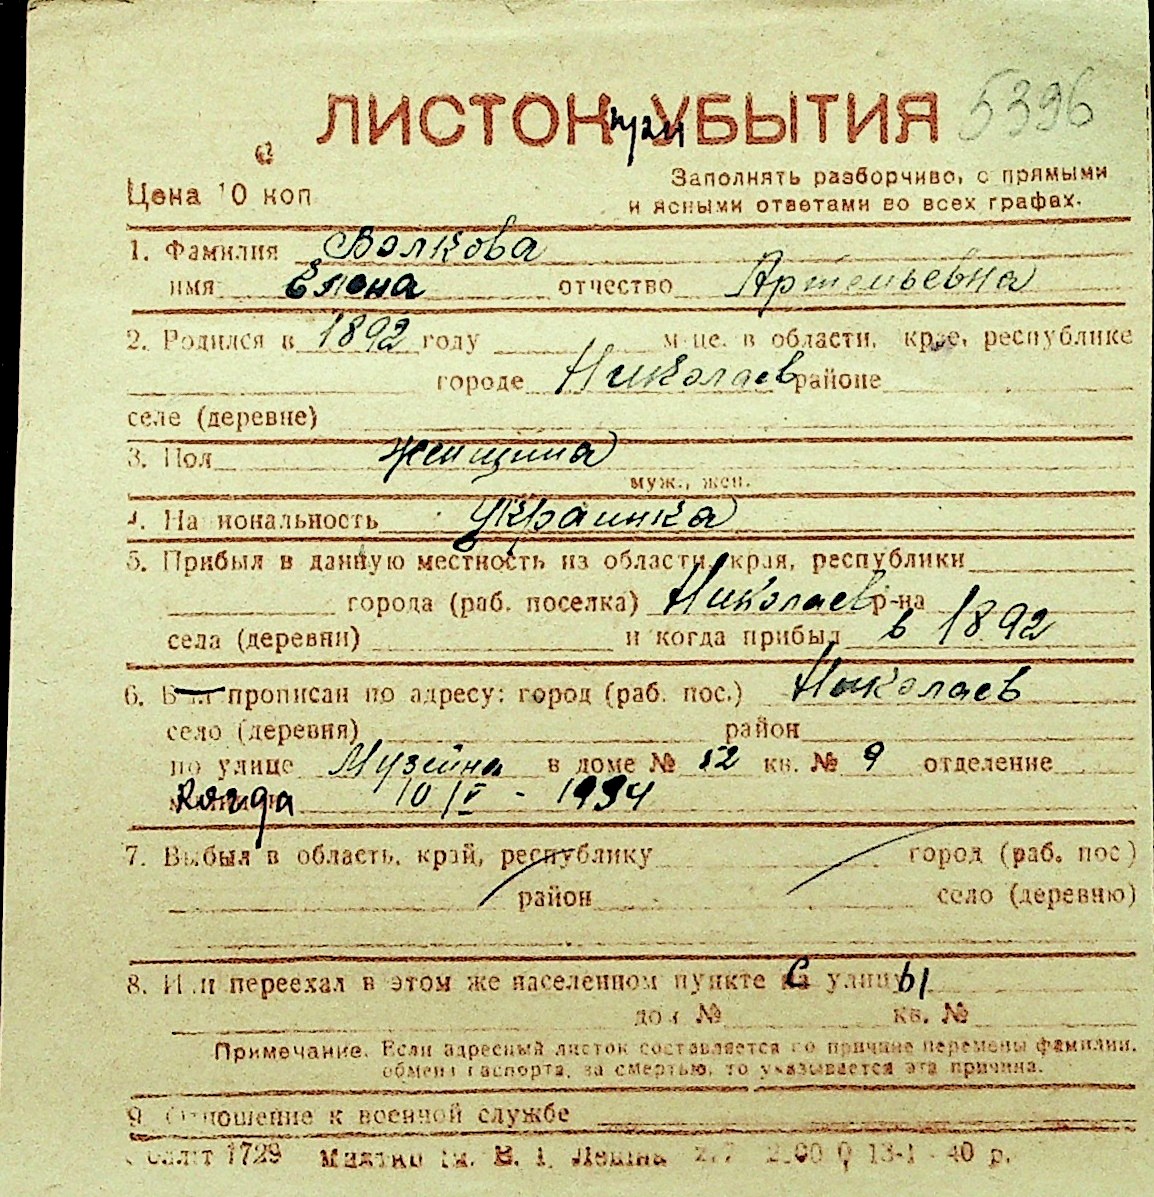 ЛИСТОК при УБЫТИЯ 5396
Цена 10 коп
Заполнять разборчиво, с прямыми
и ясными ответами во всех графах.
1. Фамилия Волкова
имя Елена отчество Артемьевна
2. Родился в 1892 году м-це, в области, крае, республике
городе Николаев районе
селе (деревне)
3. Пол женщина
муж., жен.
4. Национальность украинка
5. Прибыл в данную местность из области, края, республики
города (раб. поселка) Николаев р-на
села (деревни) и когда прибыл в 1892
6. Был прописан по адресу: город (раб. пос.) Николаев
село (деревня) район
по улице Музейна в доме № 52 кв. № 9 отделение
Когда 10/V - 1934
7. Выбыл в область, край, республику город (раб. пос.)
район село (деревню)
8. Или переехал в этом же населенном пункте с улицы
дом № кв. №
Примечание. Если адресный листок составляется по причине перемены фамилии,
обмена паспорта, за смертью, то указывается эта причина.
9. Отношение к военной службе
1729 им. В. И. Ленина 13-1 - 40 р.